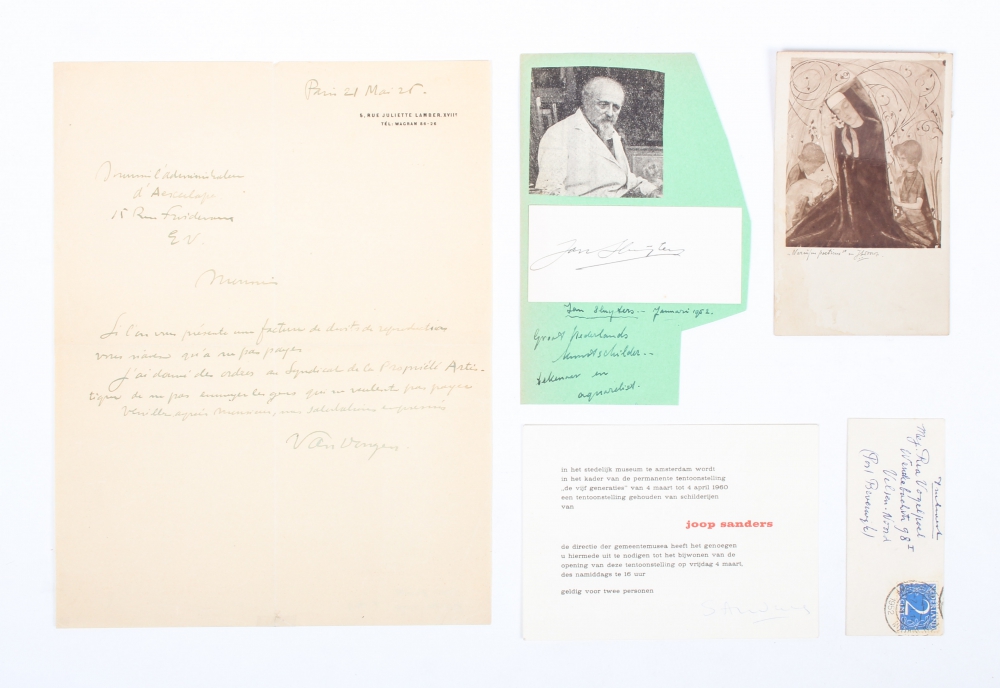 Paris 21 Mai 25.
5, RUE JULIETTE LAMBER, XVIIe
TÉL: WAGRAM 84-26
Monsieur l'administrateur
d'Aesculape
15 Rue Froidevaux
E.V.
Monsieur
Si l'on vous présente une facture de droits de reproduction
vous n'avez qu'à ne pas payer
J'ai donné des ordres au Syndicat de la Propriété Artis-
tique de ne pas ennuyer les gens qui ne veulent pas payer
Veuillez agréer Monsieur, mes salutations empressées
Van Dongen
Jan Sluijters
Jan Sluyters -- Januari 1952.
Groot Nederlands
kunstschilder --
tekenaar en
aquarellist.
in het stedelijk museum te amsterdam wordt
in het kader van de permanente tentoonstelling
„de vijf generaties” van 4 maart tot 4 april 1960
een tentoonstelling gehouden van schilderijen
van
joop sanders
de directie der gemeentemusea heeft het genoegen
u hiermede uit te nodigen tot het bijwonen van de
opening van deze tentoonstelling op vrijdag 4 maart,
des namiddags te 16 uur
geldig voor twee personen
Sanders
Mej. Ria Vogelpoel
98 I
Velsen-Noord
(Post Beverwijk)
NEDERLAND
2